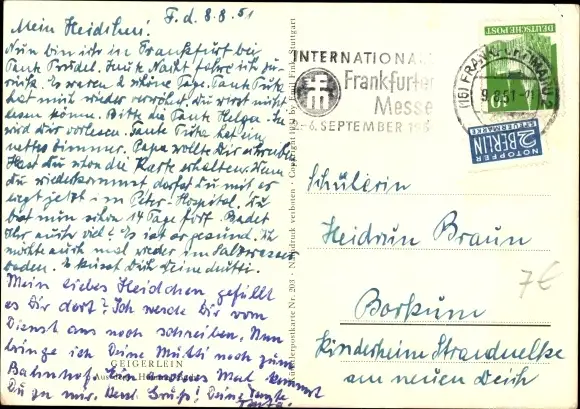 F. d. 8.8.51
Mein Heidilein!
Nun bin ich in Frankfurt bei
Tante Trudel. Heute Nacht fahre ich zu-
rück. Es waren 2 schöne Tage. Tante
hat mich wieder verwöhnt. Du wirst nicht
lesen können. Bitte die Tante Helga. Sie
wird Dir vorlesen. Tante hat ein
nettes Zimmer. Papa wollte Dir schreiben.
Hast Du schon die Karte erhalten? Wenn
du wiederkommst darfst du mit
jetzt im Peter-Hospital. Du
bist nun schon 14 Tage fort. Badet
Ihr auch viel? Es ist so gesund. Ich
möchte auch mal wieder im Salzwasser
baden. Es küsst Dich Deine Mutti.
Mein liebes Heidchen gefällt
es Dir dort? Ich werde Dir vom
Dienst aus noch schreiben. Nun
bringe ich Deine Mutti noch zum
Bahnhof. Ein anderes Mal kommst
Du zu mir. Deine Tante
GEIGERLEIN
Nr. 203 - Nachdruck verboten - Copyright 1951 by Emil Fink, Stuttgart
INTERNATIONALE
Frankfurter
Messe
-6. SEPTEMBER 195
(16) FRANKFURT (MAIN) 2
DEUTSCHE POST
10
NOTOPFER
2 BERLIN
STEUERMARKE
Schülerin
Heidrun Braun
7€
Borkum
Kinderheim Strandnelke
am neuen Deich